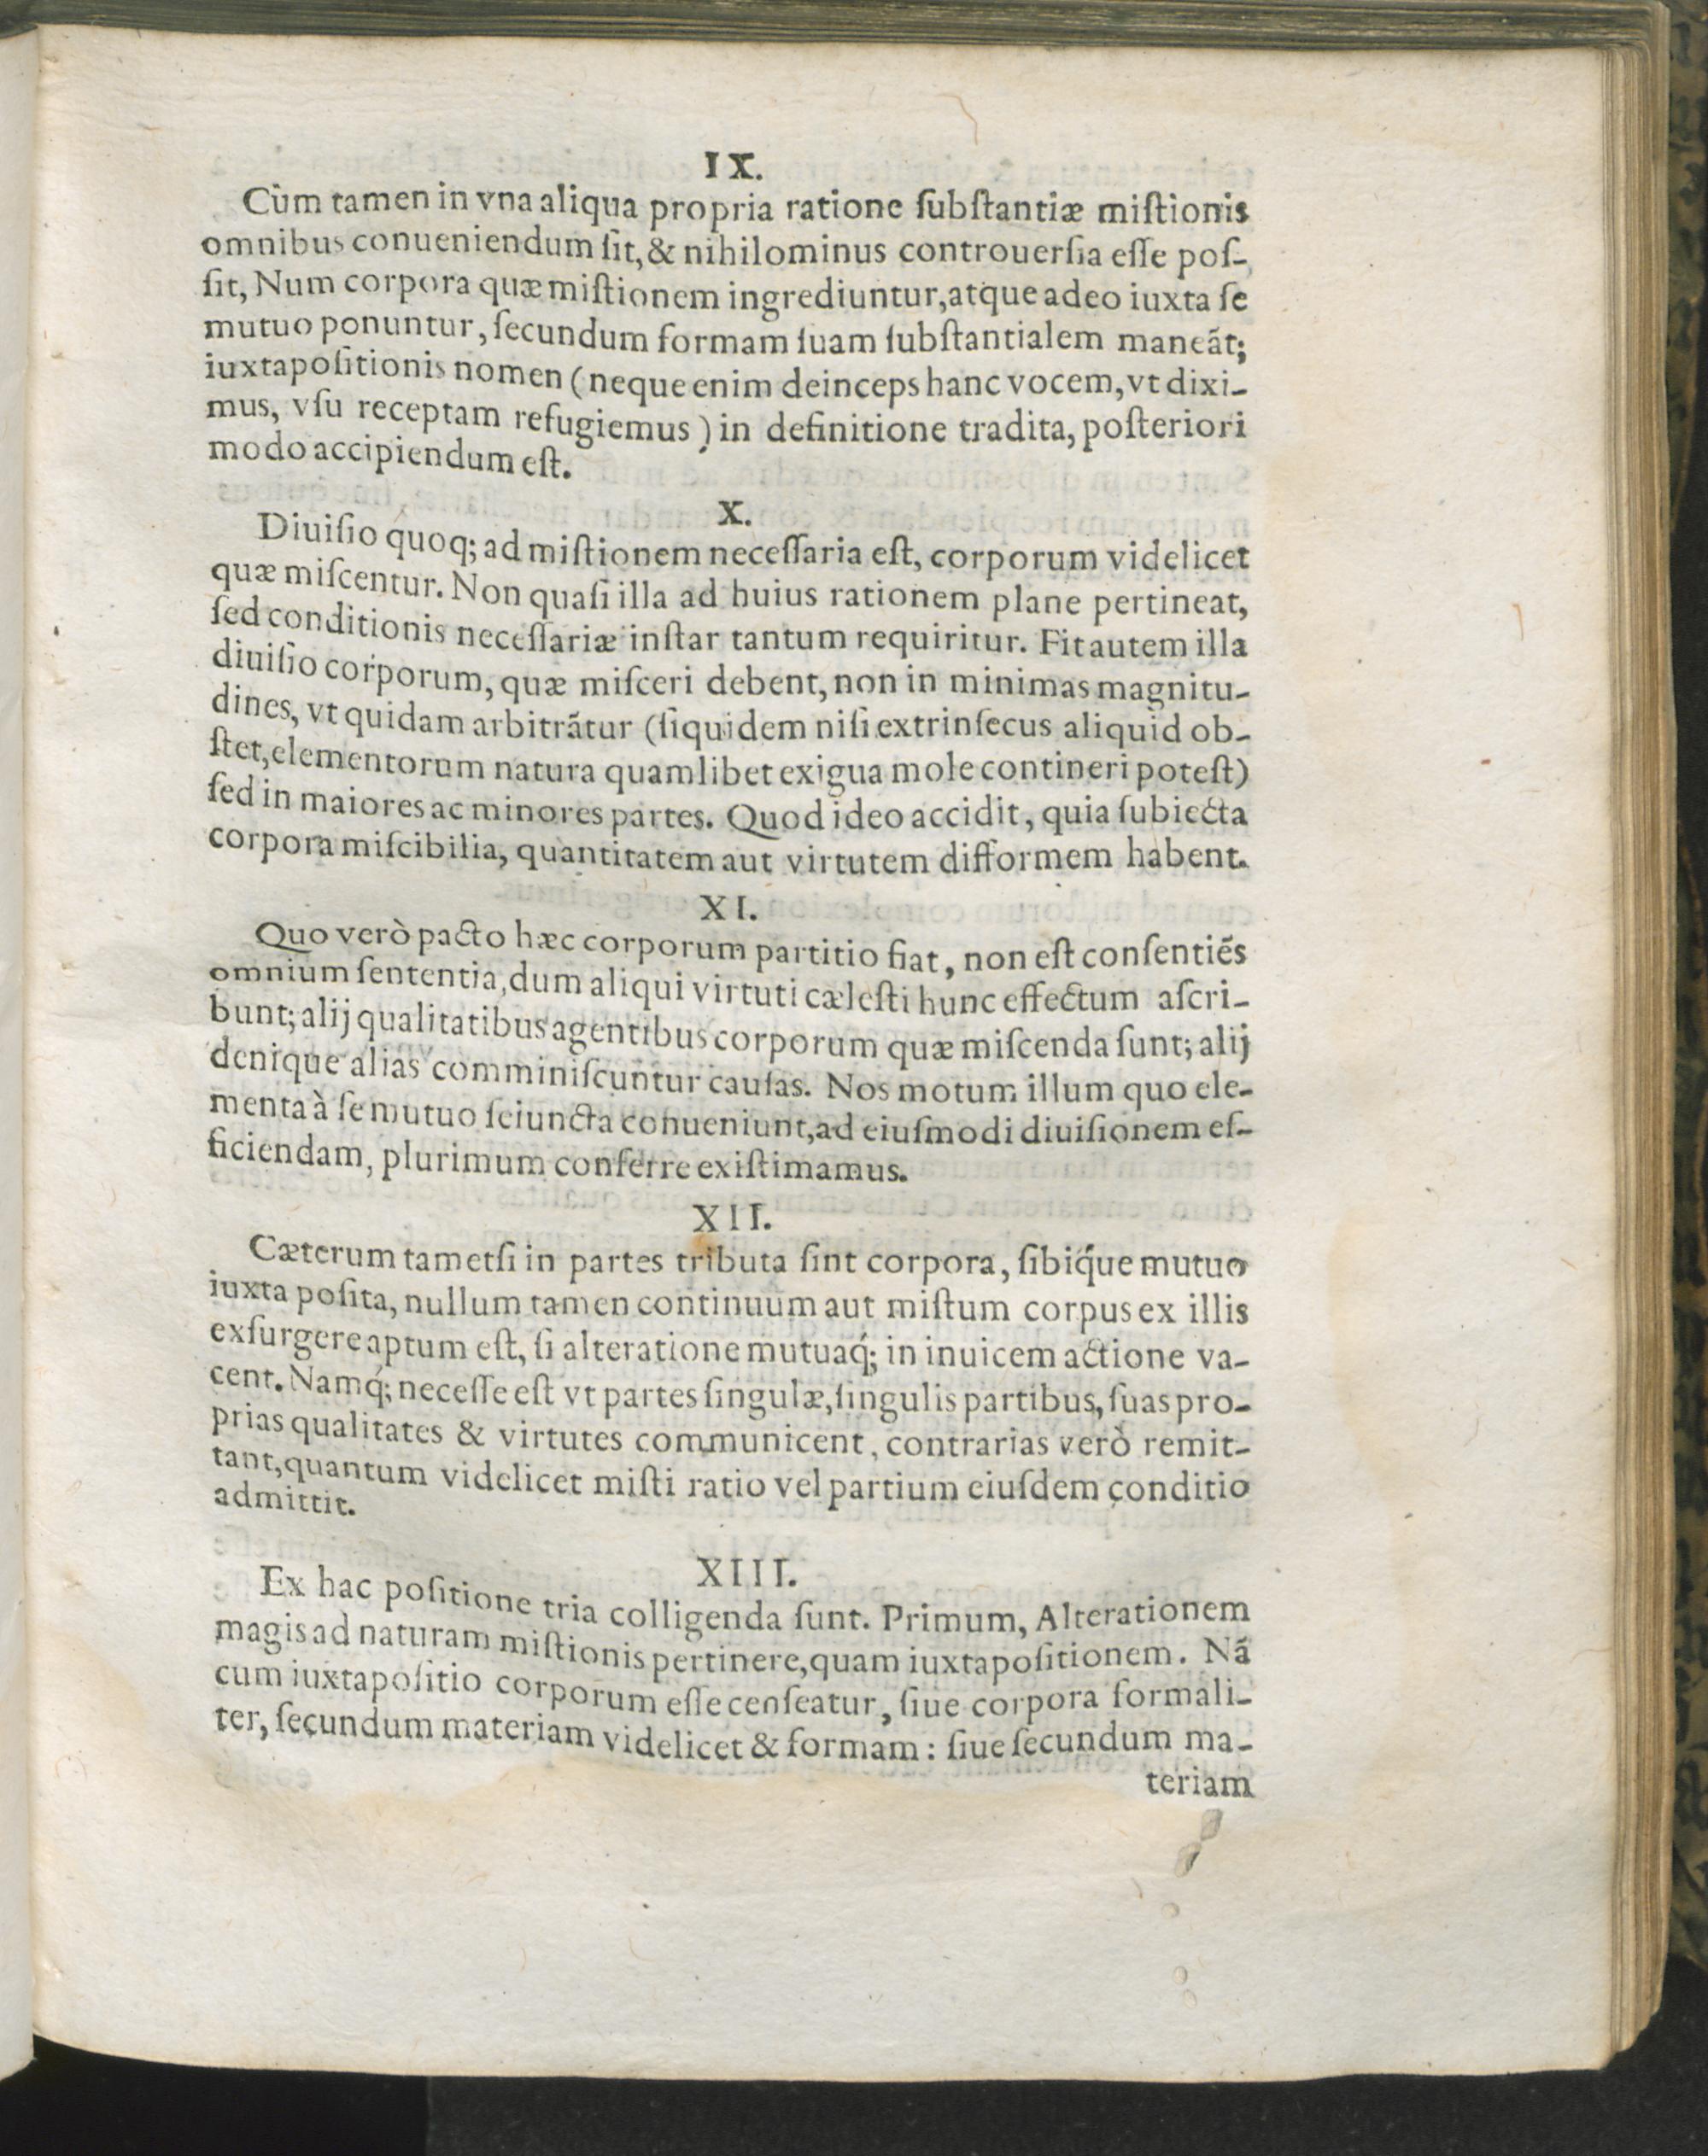 IX.
Cùm tamen in vna aliqua propria ratione ſubſtantiæ miſtionis
omnibus conueniendum ſit, & nihilominus controuerſia eſſe poſ-
ſit, Num corpora quæ miſtionem ingrediuntur, atque adeo iuxta ſe
mutuo ponuntur, ſecundum formam ſuam ſubſtantialem maneãt;
iuxtapoſitionis nomen (neque enim deinceps hanc vocem, vt dixi-
mus, vſu receptam refugiemus) in definitione tradita, poſteriori
modo accipiendum eſt.
X.
Diuiſio quoq; ad miſtionem neceſſaria eſt, corporum videlicet
quæ miſcentur. Non quaſi illa ad huius rationem plane pertineat,
ſed conditionis neceſſariæ inſtar tantum requiritur. Fit autem illa
diuiſio corporum, quæ miſceri debent, non in minimas magnitu-
dines, vt quidam arbitrãtur (ſiquidem niſi extrinſecus aliquid ob-
ſtet, elementorum natura quamlibet exigua mole contineri poteſt)
ſed in maiores ac minores partes. Quod ideo accidit, quia ſubiecta
corpora miſcibilia, quantitatem aut virtutem difformem habent.
XI.
Quo verò pacto hæc corporum partitio fiat, non eſt conſentiẽs
omnium ſententia, dum aliqui virtuti cæleſti hunc effectum aſcri-
bunt; alij qualitatibus agentibus corporum quæ miſcenda ſunt; alij
denique alias comminiſcuntur cauſas. Nos motum illum quo ele-
menta à ſe mutuo ſeiuncta conueniunt, ad eiuſmodi diuiſionem ef-
ficiendam, plurimum conferre exiſtimamus.
XII.
Cæterum tametſi in partes tributa ſint corpora, ſibiq́ue mutuo
iuxta poſita, nullum tamen continuum aut miſtum corpus ex illis
exſurgere aptum eſt, ſi alteratione mutuaq́; in inuicem actione va-
cent. Namq́; neceſſe eſt vt partes ſingulæ, ſingulis partibus, ſuas pro-
prias qualitates & virtutes communicent, contrarias verò remit-
tant, quantum videlicet miſti ratio vel partium eiuſdem conditio
admittit.
XIII.
Ex hac poſitione tria colligenda ſunt. Primum, Alterationem
magis ad naturam miſtionis pertinere, quam iuxtapoſitionem. Nã
cum iuxtapoſitio corporum eſſe cenſeatur, ſiue corpora formali-
ter, ſecundum materiam videlicet & formam: ſiue ſecundum ma-
teriam